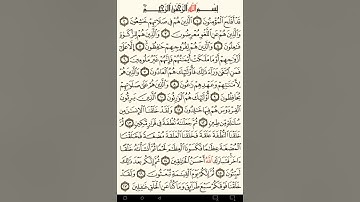 بِسْمِ ٱللَّهِ ٱلرَّحْمَٰنِ ٱلرَّحِيمِ
قَدْ أَفْلَحَ ٱلْمُؤْمِنُونَ ١ ٱلَّذِينَ هُمْ فِي صَلَاتِهِمْ خَٰشِعُونَ ٢
وَٱلَّذِينَ هُمْ عَنِ ٱللَّغْوِ مُعْرِضُونَ ٣ وَٱلَّذِينَ هُمْ لِلزَّكَوٰةِ
فَٰعِلُونَ ٤ وَٱلَّذِينَ هُمْ لِفُرُوجِهِمْ حَٰفِظُونَ ٥ إِلَّا عَلَىٰٓ
أَزْوَٰجِهِمْ أَوْ مَا مَلَكَتْ أَيْمَٰنُهُمْ فَإِنَّهُمْ غَيْرُ مَلُومِينَ ٦
فَمَنِ ٱبْتَغَىٰ وَرَآءَ ذَٰلِكَ فَأُو۟لَٰٓئِكَ هُمُ ٱلْعَادُونَ ٧ وَٱلَّذِينَ هُمْ
لِأَمَٰنَٰتِهِمْ وَعَهْدِهِمْ رَٰعُونَ ٨ وَٱلَّذِينَ هُمْ عَلَىٰ صَلَوَٰتِهِمْ
يُحَافِظُونَ ٩ أُو۟لَٰٓئِكَ هُمُ ٱلْوَٰرِثُونَ ١٠ ٱلَّذِينَ يَرِثُونَ
ٱلْفِرْدَوْسَ هُمْ فِيهَا خَٰلِدُونَ ١١ وَلَقَدْ خَلَقْنَا ٱلْإِنسَٰنَ مِن
سُلَٰلَةٍ مِّن طِينٍ ١٢ ثُمَّ جَعَلْنَٰهُ نُطْفَةً فِي قَرَارٍ مَّكِينٍ ١٣ ثُمَّ
خَلَقْنَا ٱلنُّطْفَةَ عَلَقَةً فَخَلَقْنَا ٱلْعَلَقَةَ مُضْغَةً فَخَلَقْنَا
ٱلْمُضْغَةَ عِظَٰمًا فَكَسَوْنَا ٱلْعِظَٰمَ لَحْمًا ثُمَّ أَنشَأْنَٰهُ خَلْقًا
ءَاخَرَ فَتَبَارَكَ ٱللَّهُ أَحْسَنُ ٱلْخَٰلِقِينَ ١٤ ثُمَّ إِنَّكُم بَعْدَ ذَٰلِكَ
لَمَيِّتُونَ ١٥ ثُمَّ إِنَّكُمْ يَوْمَ ٱلْقِيَٰمَةِ تُبْعَثُونَ ١٦ وَلَقَدْ
خَلَقْنَا فَوْقَكُمْ سَبْعَ طَرَآئِقَ وَمَا كُنَّا عَنِ ٱلْخَلْقِ غَٰفِلِينَ ١٧